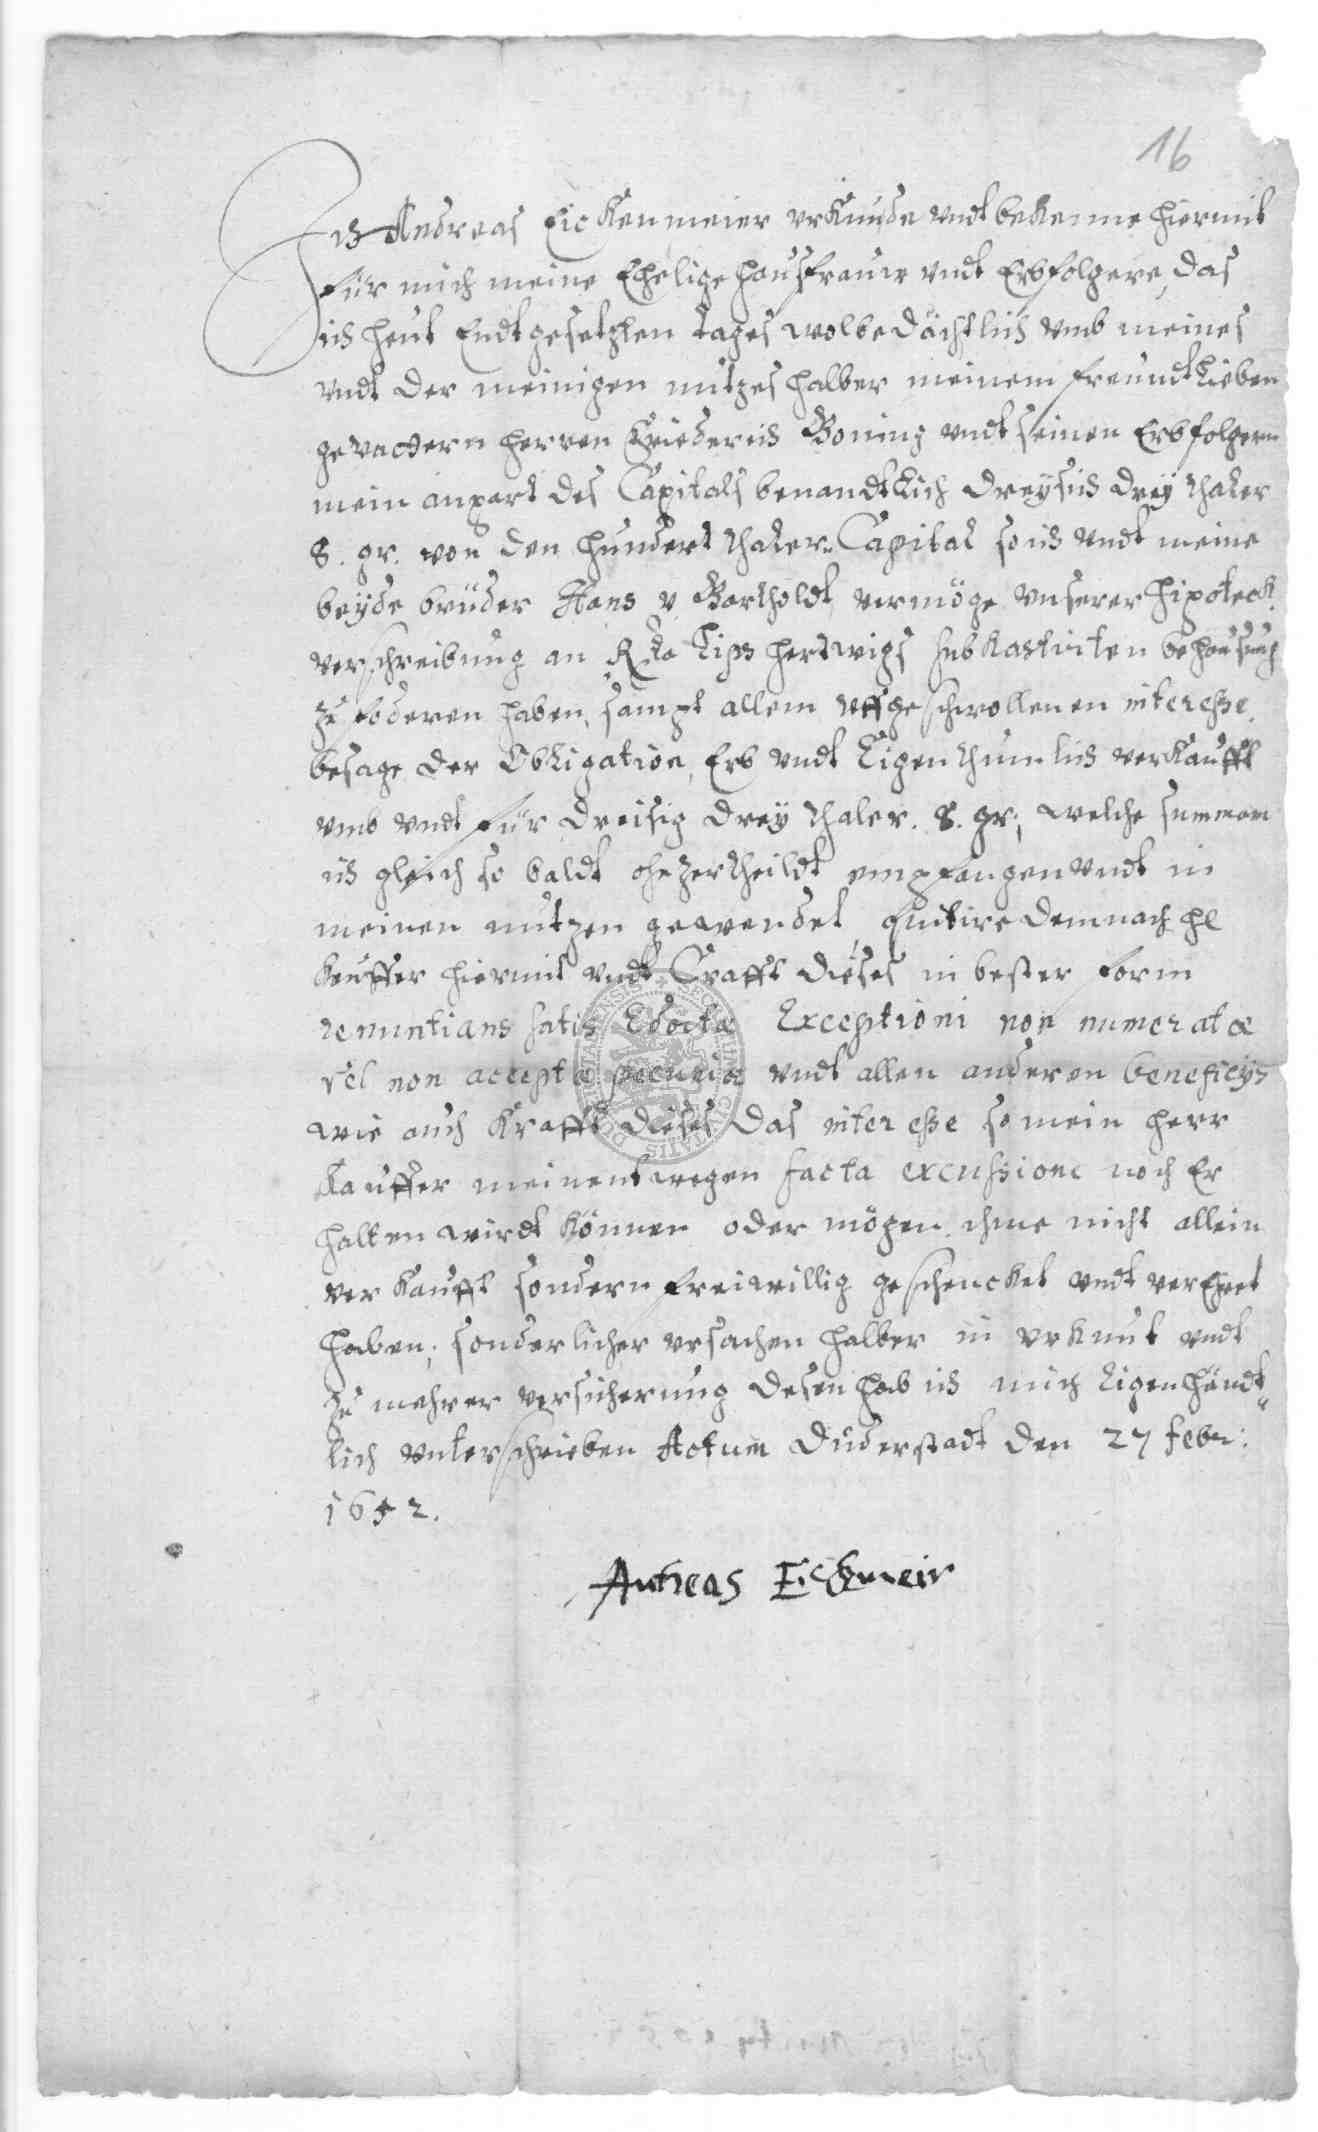 16
Ich Andreas Eickenmeier vrkunde vndt bekenne hiermit
für mich meine Ehelige hausfrauw vndt Erbfolgere, das
ich heut Endtgesetzten tages wolbedächtlich vmb meines
vndt der meinigen nutzes halber meinem freundtlieben
gevattern herren Friederich Boning vndt seinen Erbfolgern
mein anpart des Capitals benandtlich dreysich drey thaler
8. gr. von den hundert thaler Capital so ich vndt meine
beyde brüder Hans v Bartholdt vermöge vnserer hipoteck
verschreibung an Lips hertwigs subhastirten behausung
zu foderen haben, sampt allem vffgeschwollenen interesse
besage der Obligation, Erb vndt Eigenthumlich verkaufft
vmb vndt für dreisig drey thaler. 8. gr, welche summam
ich gleich so baldt ohnzertheildt empfangen vndt in
meinen nutzen gewendet quitire demnach
Keuffer hiermit vndt Crafft dieses in bester form
renuntians satis Edocta Exceptioni non numeratæ
vel non acceptæ pecuniæ vndt allen anderen beneficys
wie auch krafft dieses das interesse so mein herr
Kauffer meinentwegen facta excussione noch Er
halten wirdt können oder mögen ihme nicht allein
verkaufft sondern freiwillig geschencket vndt verehret
haben, sonderlicher vrsachen halber in vrkunt vndt
zu mehrer versicherung desen hab ich mich Eigenhändt
lich vnterschrieben Actum Duderstadt den 27 febr:
1652.
Andreas Eickmeir